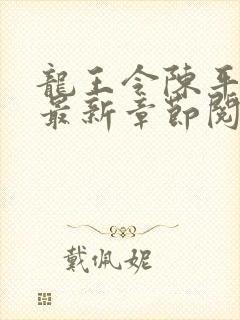 龍王令陳平
最新章節閱
戴佩妮